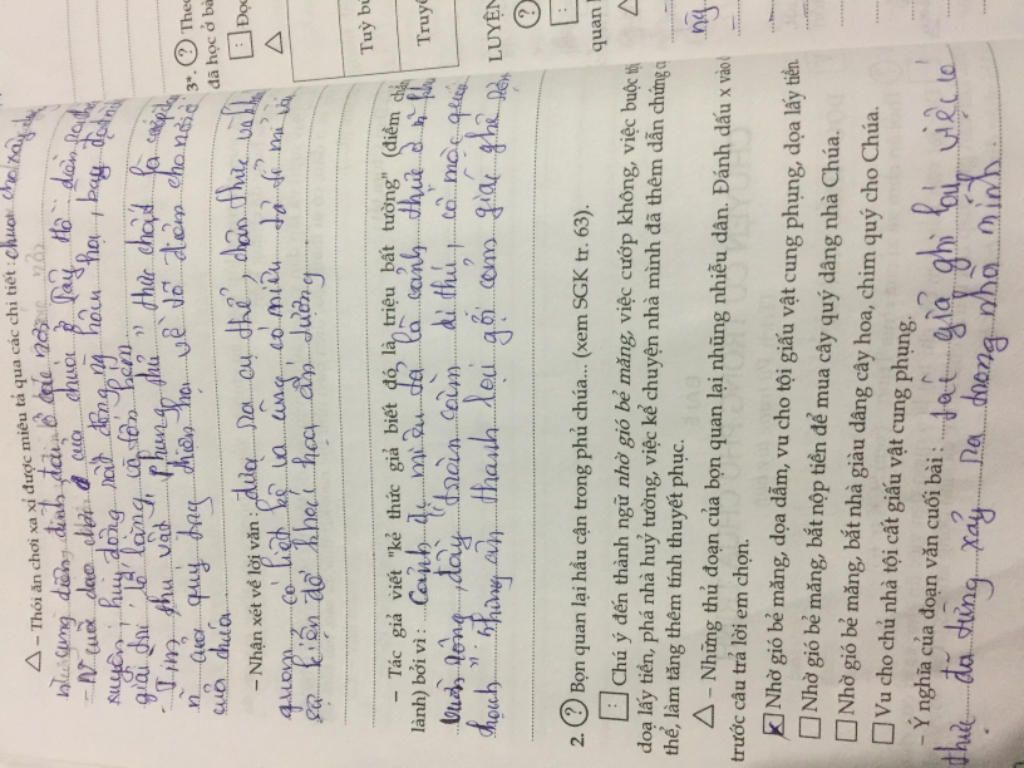 △ – Thói ăn chơi xa xỉ được miêu tả qua các chi tiết : chúa cho xây dựng
cung điện, đình đài ở các nơi
- N cuộc dạo chơi của chúa ở Tây Hồ diễn ra thường
xuyên, huy động rất đông ng hầu hạ, bày
giải trí lố lăng và tốn kém
- Tìm thu vật " phụng thủ " thực chất là cướp
n của quý trong thiên hạ về tô điểm cho nơi ở
của chúa
– Nhận xét về lời văn : đưa ra cụ thể, chân thực và
quan có liệt kê và cũng có miêu tả tỉ mỉ vài
sự kiện để khắc hoạ ấn tượng
– Tác giả viết "kẻ thức giả biết đó là triệu bất tường" (điềm chẳng
lành) bởi vì : Cảnh đc miêu tả là cảnh thực ở n
vườn rộng, đầy trân cầm dị thú, cổ mộc quái
thạch " nhưng âm thanh lại gợi cảm giác ghê rợn
2. ? Bọn quan lại hầu cận trong phủ chúa... (xem SGK tr. 63).
: Chú ý đến thành ngữ nhờ gió bẻ măng, việc cướp không, việc buộc tội
doạ lấy tiền, phá nhà huỷ tường, việc kể chuyện nhà mình đã thêm dẫn chứng cụ
thể, làm tăng thêm tính thuyết phục.
△ – Những thủ đoạn của bọn quan lại nhũng nhiễu dân. Đánh dấu x vào
trước câu trả lời em chọn.
x Nhờ gió bẻ măng, dọa dẫm, vu cho tội giấu vật cung phụng, dọa lấy tiền.
□ Nhờ gió bẻ măng, bắt nộp tiền để mua cây quý dâng nhà Chúa.
□ Nhờ gió bẻ măng, bắt nhà giàu dâng cây hoa, chim quý cho Chúa.
□ Vu cho chủ nhà tội cất giấu vật cung phụng.
– Ý nghĩa của đoạn văn cuối bài : tác giả ghi lại việc có
thực đã từng xảy ra trong nhà mình.
3*. ? Theo
đã học ở bà
: Đọc
△
Tuỳ bú
Truyệ
LUYỆN
?
:
quan l
△